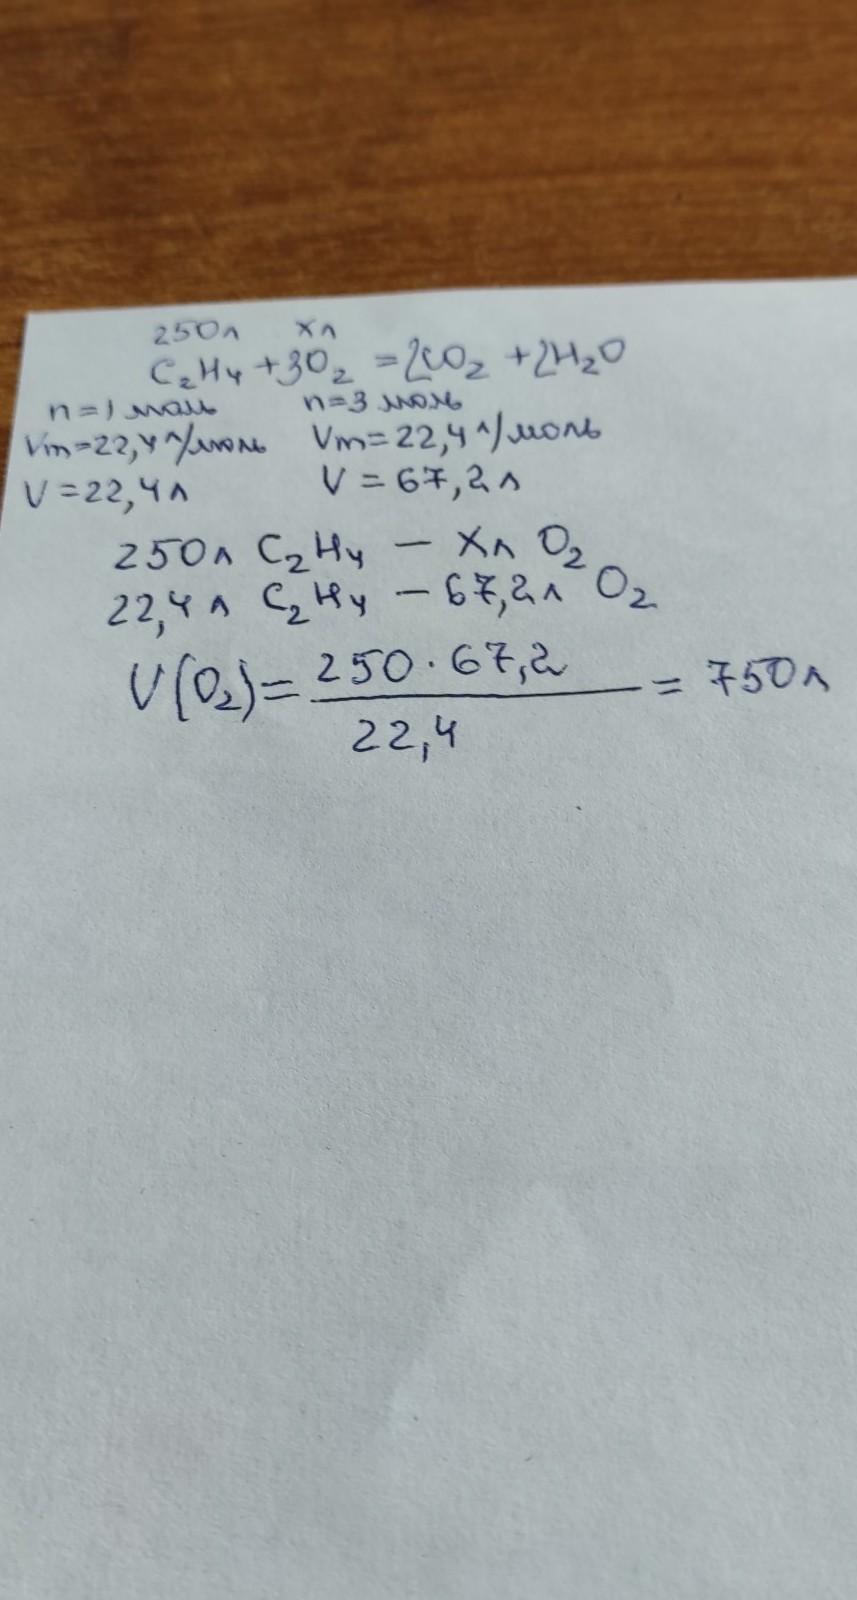 250л хл
C₂H₄ + 3O₂ = 2CO₂ + 2H₂O
n=1 моль n=3 моль
Vm=22,4 л/моль Vm=22,4 л/моль
V=22,4 л V = 67,2 л
250л C₂H₄ — хл O₂
22,4 л C₂H₄ — 67,2 л O₂
V(O₂) = 250 · 67,2 / 22,4 = 750 л